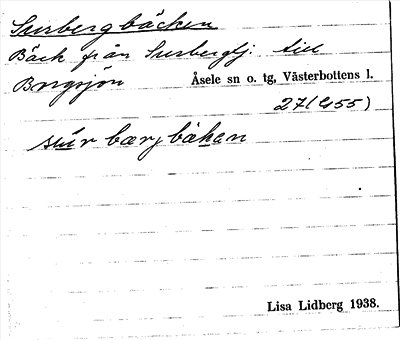 Surbergbäcken
Bäck från Surbergtj. till
Borgsjön Åsele sn o. tg, Västerbottens l.
271(455)
sú̄r bærj bäkən
Lisa Lidberg 1938.